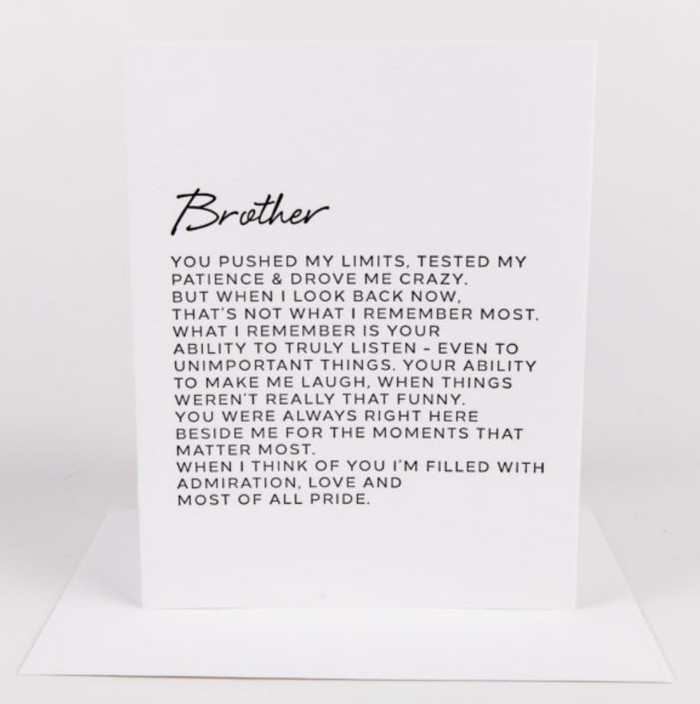 Brother
YOU PUSHED MY LIMITS, TESTED MY
PATIENCE & DROVE ME CRAZY.
BUT WHEN I LOOK BACK NOW,
THAT'S NOT WHAT I REMEMBER MOST.
WHAT I REMEMBER IS YOUR
ABILITY TO TRULY LISTEN - EVEN TO
UNIMPORTANT THINGS. YOUR ABILITY
TO MAKE ME LAUGH, WHEN THINGS
WEREN'T REALLY THAT FUNNY.
YOU WERE ALWAYS RIGHT HERE
BESIDE ME FOR THE MOMENTS THAT
MATTER MOST.
WHEN I THINK OF YOU I'M FILLED WITH
ADMIRATION, LOVE AND
MOST OF ALL PRIDE.